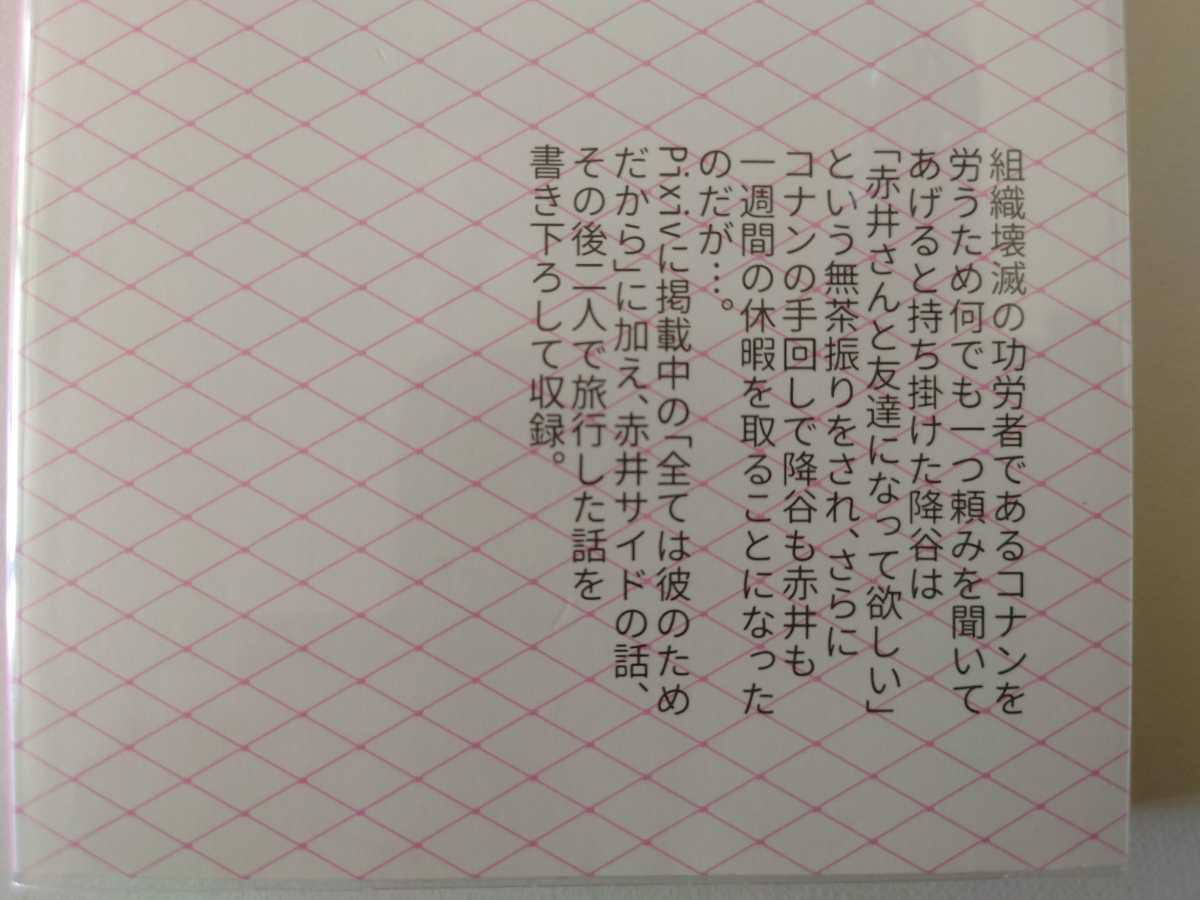 組織壊滅の功労者であるコナンを
労うため何でも一つ頼みを聞いて
あげると持ち掛けた降谷は
「赤井さんと友達になって欲しい」
という無茶振りをされ、さらに
コナンの手回しで降谷も赤井も
一週間の休暇を取ることになった
のだが…。
pixivに掲載中の「全ては彼のため
だから」に加え、赤井サイドの話、
その後二人で旅行した話を
書き下ろして収録。